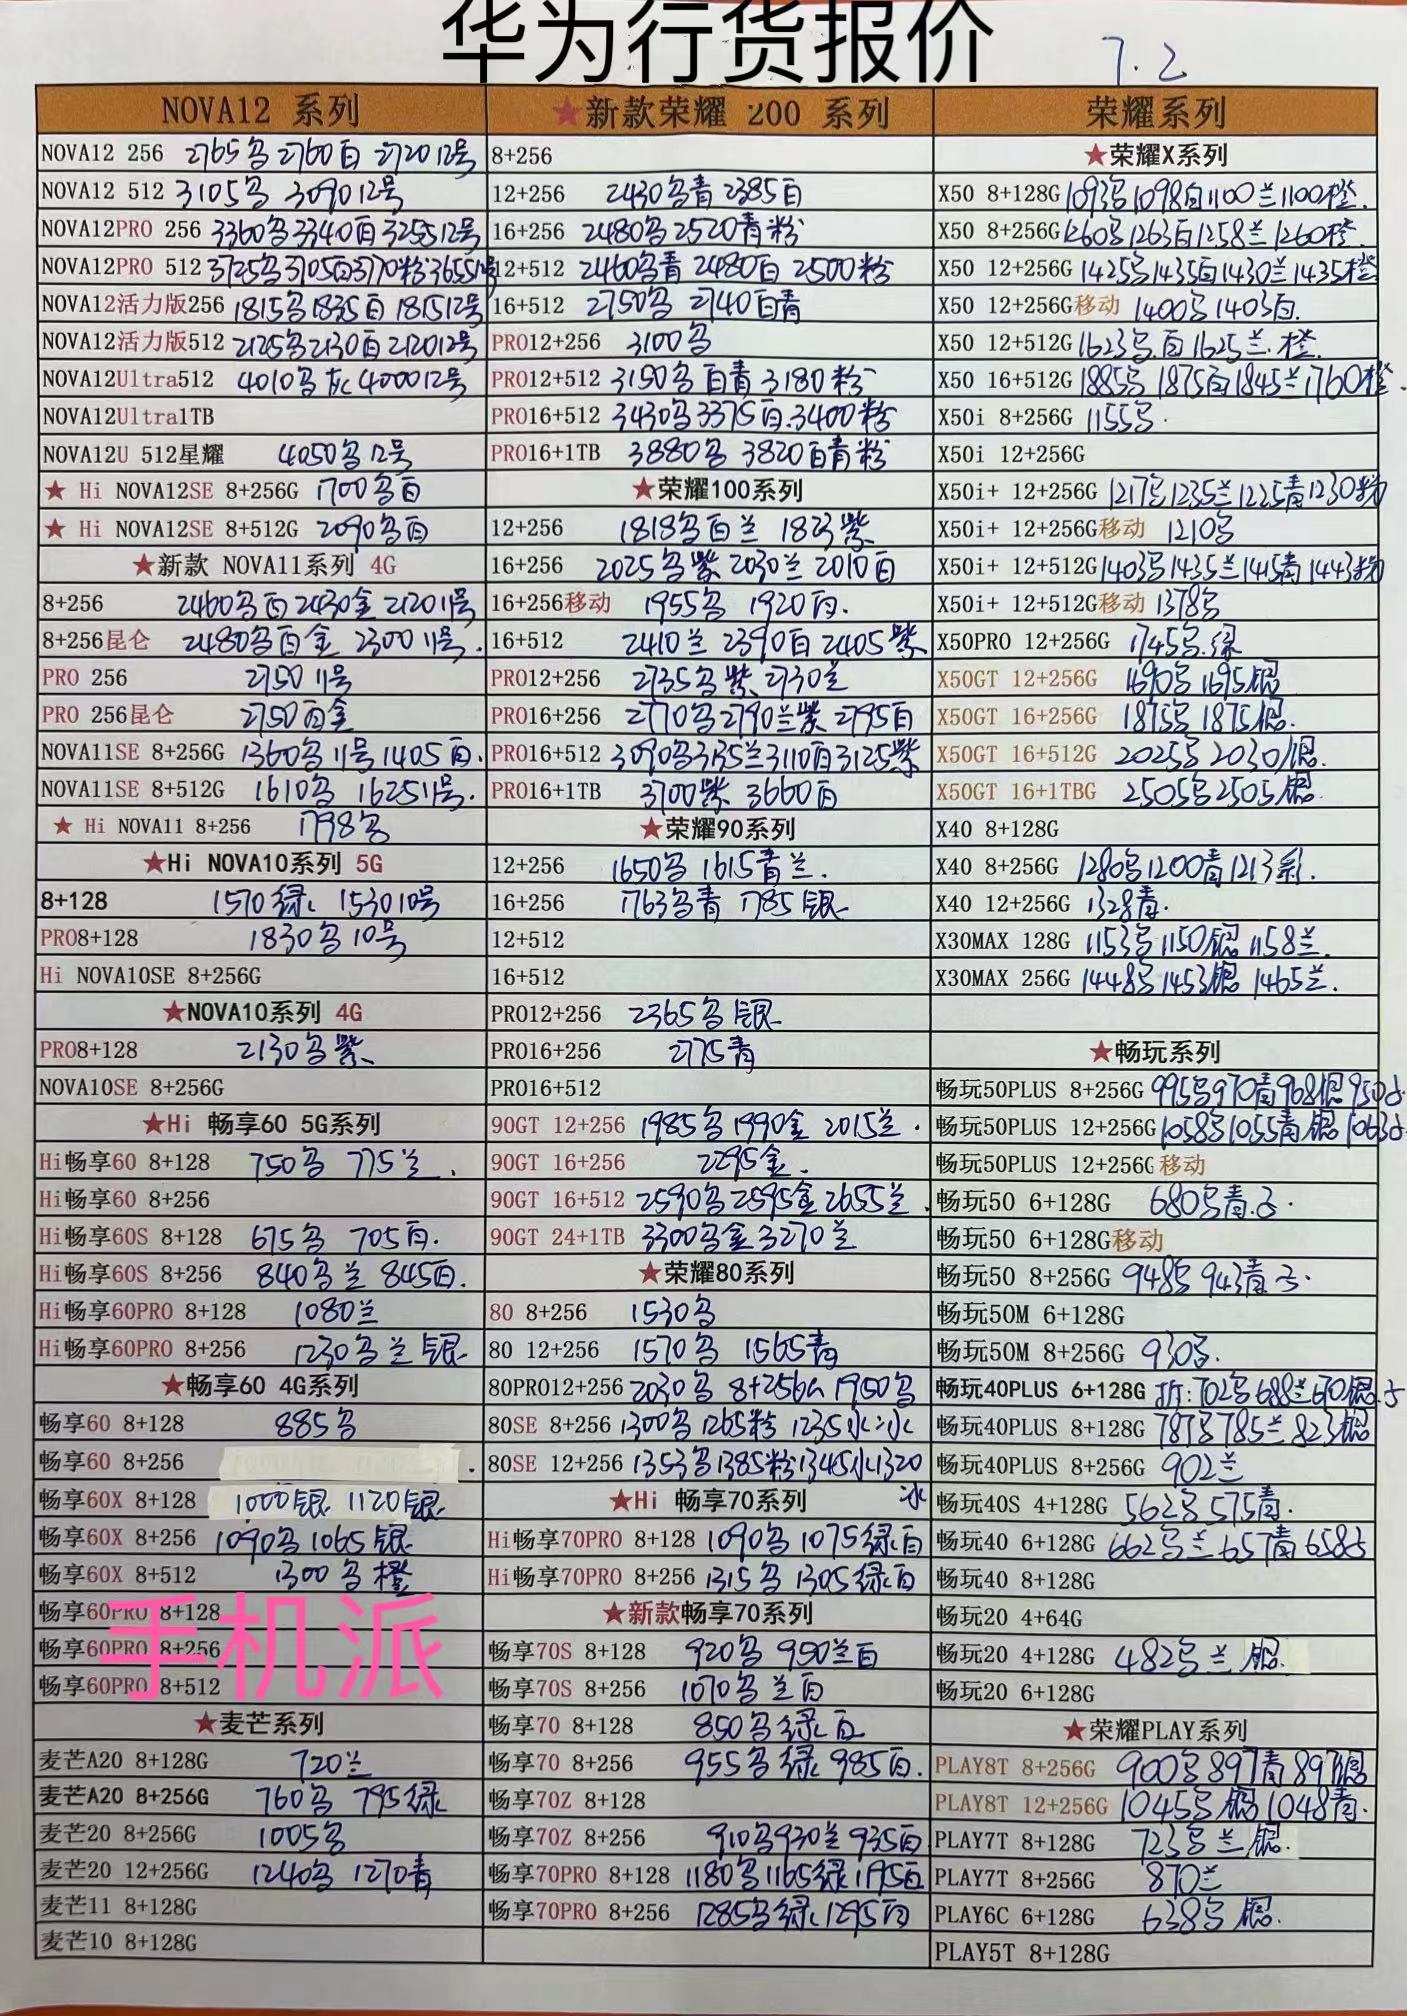 华为行货报价
7.2
NOVA12 系列
NOVA12 256 2765乌2760白 2720 12号
NOVA12 512 3105乌 3090 12号
NOVA12PRO 256 3360乌3340白3255 12号
NOVA12PRO 512 3725乌3705白3770粉3655
NOVA12活力版256 1815乌1835白 1815 12号
NOVA12活力版512 2125乌2130白2120 12号
NOVA12Ultra512 4010乌灰4000 12号
NOVA12Ultra1TB
NOVA12U 512星耀 4050乌12号
★ Hi NOVA12SE 8+256G 1700乌白
★ Hi NOVA12SE 8+512G 2090乌白
★新款 NOVA11系列 4G
8+256 2460乌白2430金 2120 11号
8+256昆仑 2480乌白金 2300 11号.
PRO 256 2750 11号
PRO 256昆仑 2750白金
NOVA11SE 8+256G 1360乌11号1405白.
NOVA11SE 8+512G 1610乌 1625 11号.
★ Hi NOVA11 8+256 1798乌
★Hi NOVA10系列 5G
8+128 1570绿 1530 10号
PRO8+128 1830乌10号
Hi NOVA10SE 8+256G
★NOVA10系列 4G
PRO8+128 2130乌紫
NOVA10SE 8+256G
★Hi 畅享60 5G系列
Hi畅享60 8+128 750乌 775兰.
Hi畅享60 8+256
Hi畅享60S 8+128 675乌 705白.
Hi畅享60S 8+256 840乌兰 845白.
Hi畅享60PRO 8+128 1080兰
Hi畅享60PRO 8+256 1230乌兰银
★畅享60 4G系列
畅享60 8+128 885乌
畅享60 8+256
畅享60X 8+128 1000银 1120银
畅享60X 8+256 1090乌1065银
畅享60X 8+512 1300乌橙
畅享60PRO 8+128
畅享60PRO 8+256
畅享60PRO 8+512
手机派
★麦芒系列
麦芒A20 8+128G 720兰
麦芒A20 8+256G 760乌 795绿
麦芒20 8+256G 1005乌
麦芒20 12+256G 1240乌 1270青
麦芒11 8+128G
麦芒10 8+128G
★新款荣耀 200 系列
8+256
12+256 2430乌青2385白
16+256 2480乌2520青粉
12+512 2460乌青 2480白 2500粉
16+512 2750乌 2740白青
PRO12+256 3100乌
PRO12+512 3150乌白青3180粉
PRO16+512 3430乌3375白.3400粉
PRO16+1TB 3880乌 3820白青粉
★荣耀100系列
12+256 1818乌白兰 1833紫
16+256 2025乌紫2030兰2010白
16+256移动 1955乌 1920白.
16+512 2410兰 2390白 2405紫
PRO12+256 2735乌紫2730兰
PRO16+256 2770乌2790兰紫 2795白
PRO16+512 3090乌3135兰3110白3125紫
PRO16+1TB 3700紫 3660白
★荣耀90系列
12+256 1650乌1615青兰.
16+256 1763乌青 1785银
12+512
16+512
PRO12+256 2365乌银
PRO16+256 2775青
PRO16+512
90GT 12+256 1985乌1990金 2015兰.
90GT 16+256 2295金.
90GT 16+512 2590乌2595金2655兰.
90GT 24+1TB 3300乌金3270兰
★荣耀80系列
80 8+256 1530乌
80 12+256 1570乌 1565青
80PRO12+256 2030乌 8+256G 1950乌
80SE 8+256 1300乌1265粉 1235水冰
80SE 12+256 1353乌1385粉1345水1320冰
★Hi 畅享70系列
Hi畅享70PRO 8+128 1090乌1075绿白
Hi畅享70PRO 8+256 1315乌1305绿白
★新款畅享70系列
畅享70S 8+128 920乌 950兰白
畅享70S 8+256 1070乌兰白
畅享70 8+128 850乌绿白
畅享70 8+256 955乌绿985白.
畅享70Z 8+128
畅享70Z 8+256 910乌930兰935白
畅享70PRO 8+128 1180乌1165绿1195白
畅享70PRO 8+256 1285乌绿1295白
荣耀系列
★荣耀X系列
X50 8+128G 1093乌1098白1100兰1100橙.
X50 8+256G 1260乌1263白1258兰1260橙.
X50 12+256G 1425乌1435白1430兰1435橙
X50 12+256G移动 1400乌1403白.
X50 12+512G 1623乌.白1625兰.橙.
X50 16+512G 1885乌 1875白1845兰1760橙.
X50i 8+256G 1155乌.
X50i 12+256G
X50i+ 12+256G 1217乌1235兰1225青1230粉
X50i+ 12+256G移动 1210乌
X50i+ 12+512G 1403乌1435兰1415青1443粉
X50i+ 12+512G移动 1378乌
X50PRO 12+256G 1745乌.绿
X50GT 12+256G 1690乌1695银
X50GT 16+256G 1875乌1875银.
X50GT 16+512G 2025乌2030银.
X50GT 16+1TBG 2505乌2505银.
X40 8+128G
X40 8+256G 1280乌1200青1213彩.
X40 12+256G 1328青.
X30MAX 128G 1153乌1150银1158兰.
X30MAX 256G 1448乌1453银1465兰.
★畅玩系列
畅玩50PLUS 8+256G 995乌970青968银950
畅玩50PLUS 12+256G 1058乌1055青银1063
畅玩50PLUS 12+256G移动
畅玩50 6+128G 680乌青.
畅玩50 6+128G移动
畅玩50 8+256G 948乌943青.
畅玩50M 6+128G
畅玩50M 8+256G 930乌.
畅玩40PLUS 6+128G 702乌688兰670银.
畅玩40PLUS 8+128G 787乌785兰823银
畅玩40PLUS 8+256G 902兰
畅玩40S 4+128G 562乌575青.
畅玩40 6+128G 662乌兰657青658
畅玩40 8+128G
畅玩20 4+64G
畅玩20 4+128G 482乌兰银.
畅玩20 6+128G
★荣耀PLAY系列
PLAY8T 8+256G 900乌897青897银
PLAY8T 12+256G 1045乌银1048青.
PLAY7T 8+128G 723乌兰银.
PLAY7T 8+256G 870兰
PLAY6C 6+128G 638乌银.
PLAY5T 8+128G